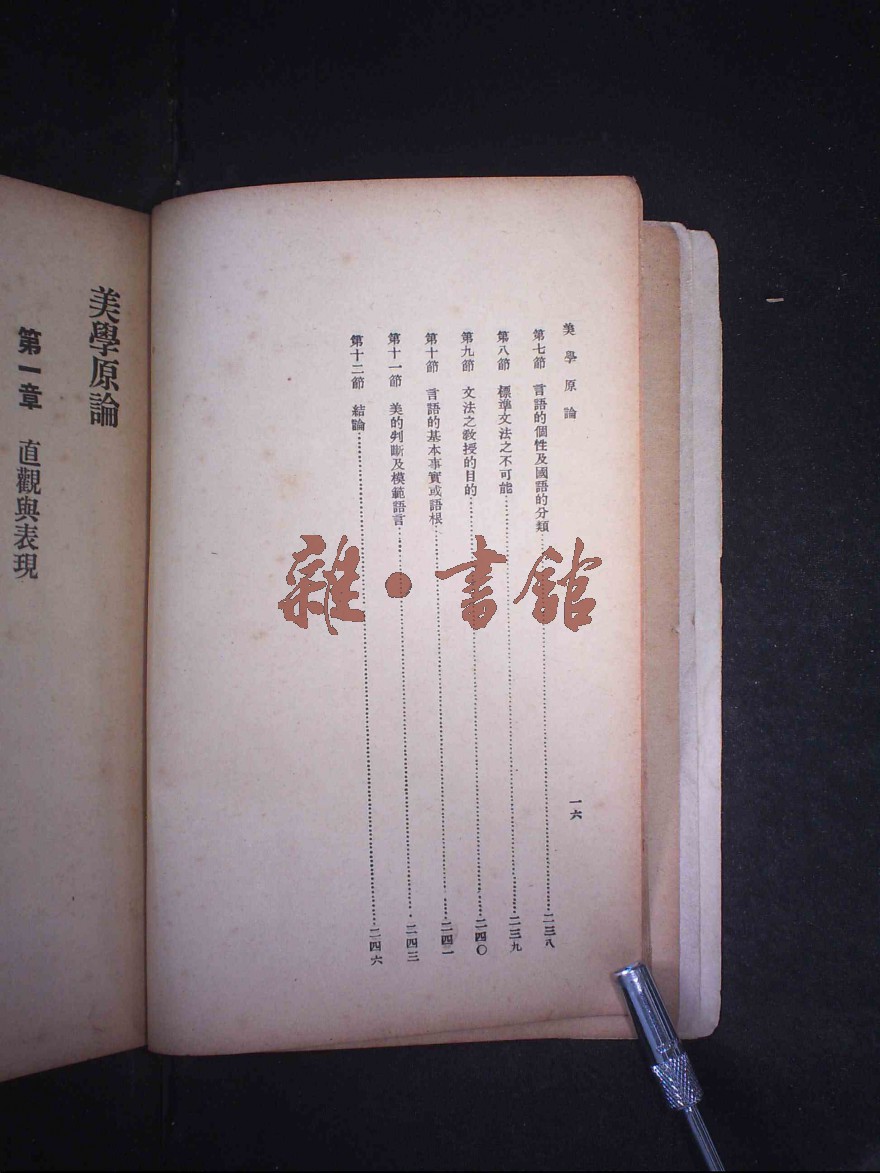 美學原論
一六
第七節　言語的個性及國語的分類……二三八
第八節　標準文法之不可能……二三九
第九節　文法之教授的目的……二四〇
第十節　言語的基本事實或語根……二四一
第十一節　美的判斷及模範語言……二四三
第十二節　結論……二四六
美學原論
第一章　直觀與表現
雜·書館